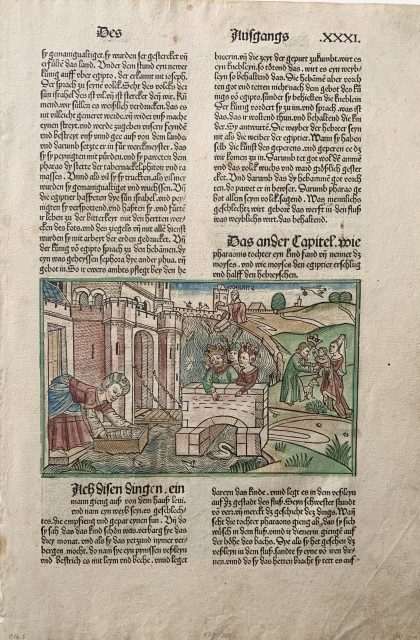 Des
Ausgangs
.XXXI.
sy gemanigualtiget. sy wurden ser gesterckt vñ
erfülte das land. Vnder dem stund eyn newer
künig auff über egipto. der erkannt nit ioseph.
Der sprach zu seyne volck. Seht des volck der
sün israhel des ist vil vñ ist stercker dañ wir. Kũ
mend. wir süllen es weißlich verdrucken. das es
nit villeicht gemeret werde. vñ wider vnß mache
eynen streyt. vnd werde zugeben vnsern feynde
vnd bestreyt vnß vnd gee auß von dem lande.
vnd darumb setzte er in für werckmeyster. das
sy sy peynigten mit pürden. vnd sy paweten dem
pharao die stette der tabernackel. phiton vnd ra
masses. Vnnd als vil sy sy truckten. als vil mer
wurden sy gemanigualtiget vnd wuchssen. Vñ
die egiptier haßseten die sün israhel. vnd pey
nigten sy verspottend. vnd
ir leben zu der bitterkeyt mit den hertten wer
cken des kots. vnd des ziegels vñ mit alle dienst
wurden sy mit arbeyt der erden gedruckt. Vñ
der künig vō egipto sprach zu den hebamen. d
eyn was geheyssen sephora dye ander phua. vñ
gebot in. So ir ewers ambts pflegt bey den he
breerin. vñ die zeyt der gepurt zukumbt. wirt es
eyn kneblein. so tötend das. wirt es eyn weyb-
leyn so behaltend das. Die hebãmē aber vorch
ten got vnd tetten nicht nach dem gebot des kü
nigs vō egipto. sunder sy behielten die knebleen
Der künig vordert sy zu im. vnd sprach. was ist
das. das ir woltend thun. vnd behaltend die kin
der. Sy antwurtē. Die weyber der hebreer seyn
nit als die weiber der egiptier. Wann sy haben
selb die kunst des geperens. vnd geperen ee dz
wir komen zu in. Darumb tet got wol dē ammē
vnd das volck wuchs vnd ward größlich gester
cket. Vnd darumb das dy hebammē got vorch
ten. do pawet er in hewser. Darumb pharao ge
bot allen seym volck. sagend. Was mennlichs
geschlechtz wirt geborē das werft in den fluß
was weyblichs wirt. das behaltend.
Das ander Capitel. wie
pharaons tochter eyn kind fand vñ nennet dz
moyses. vnd wie moyses den egiptier erschlug
vnd halff den hebreyschen.
Nach disen dingen. ein
mann gieng auß von dem hauß leui.
vnd nam eyn weyb seynes geschlech-
tes. die empfieng vnd gepar eynen sun. Vñ do
sy sah das das kind schön was. verbarg sye das
drey monat. vnd als sy das yetzund nymer ver-
bergen mocht. do nam sye eyn pynssen veßleyn
vnd bestrich es mit leym vnd beche. vnnd leget
dareyn das kinde. vnnd legt es in dem veßleyn
auff dz gestade des fluß. Seyn schwester stuond
vō verr. vñ merckt dz geschicht dz dings. Wañ
seht die tochter pharaons gieng ab. das sy sich
wüsch in dem fluß. vnnd ir diernenn giengē auff
der höhe des bachs. Sye als sy het gesehen dz
veßleyn in dem fluß. sandte sy eyne vō iren dir-
nen. vnnd do sy das hetten bracht sy tett es auf-